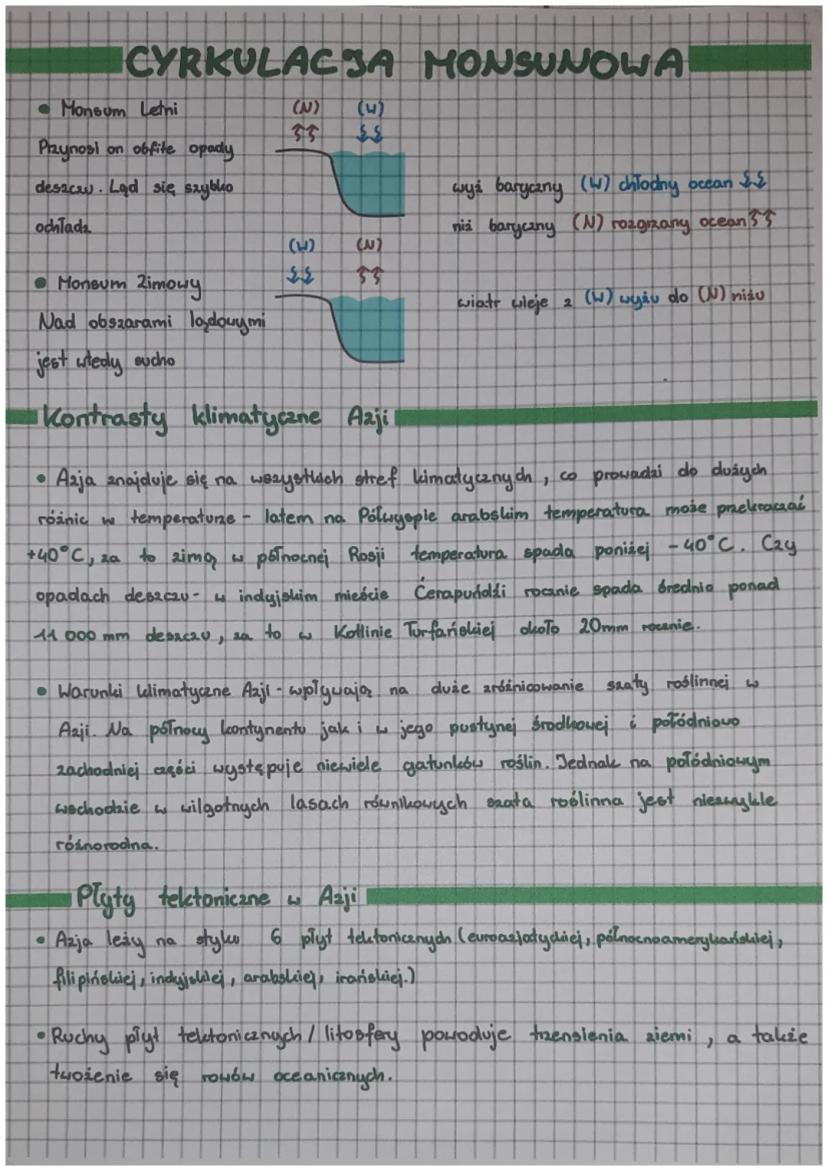 CYRKULACJA MONSUNOWA
• Monsum Letni
Przynosi on obfite opady
deszczu. Ląd się szybko
ochładz
(N) (W)
• Monsum Zimowy
Nad obszarami lądowymi
jest wtedy sucho
(W) (N)
wyż baryczny (W) chłodny ocean
niż baryczny (N) rozgrzany ocean
wiatr wieje z (W) wyżu do (N) niżu
Kontrasty klimatyczne Azji
• Azja znajduje się na wszystkich stref kimatycznych, co prowadzi do dużych
różnic w temperaturze - latem na Półwyspie arabskim temperatura może przekraczać
+40°C, za to zimą w północnej Rosji temperatura spada poniżej -40°C. Czy
opadach deszczu - w indyjskim mieście Ćerapuńdźi rocznie spada średnio ponad
11 000 mm deszczu, za to w Kotlinie Turfańskiej około 20mm rocznie.
• Warunki klimatyczne Azji - wpływają na duże zróżnicowanie szaty roślinnej w
Azji. Na północy kontynentu jak i w jego pustynej środkowej i połódniowo
zachodniej części występuje niewiele gatunków roślin. Jednak na połódniowym
wschodzie w wilgotnych lasach równikowych szata roślinna jest niezwykle
różnorodna.
Płyty tektoniczne w Azji
• Azja leży na styku 6 płyt tektonicznych (euroazjatyckiej, północnoamerykańskiej,
filipińskiej, indyjskiej, arabskiej, irańskiej.)
• Ruchy płyt tektonicznych / litosfery powoduje trzensienia ziemi, a także
twożenie się rowów oceanicznych.